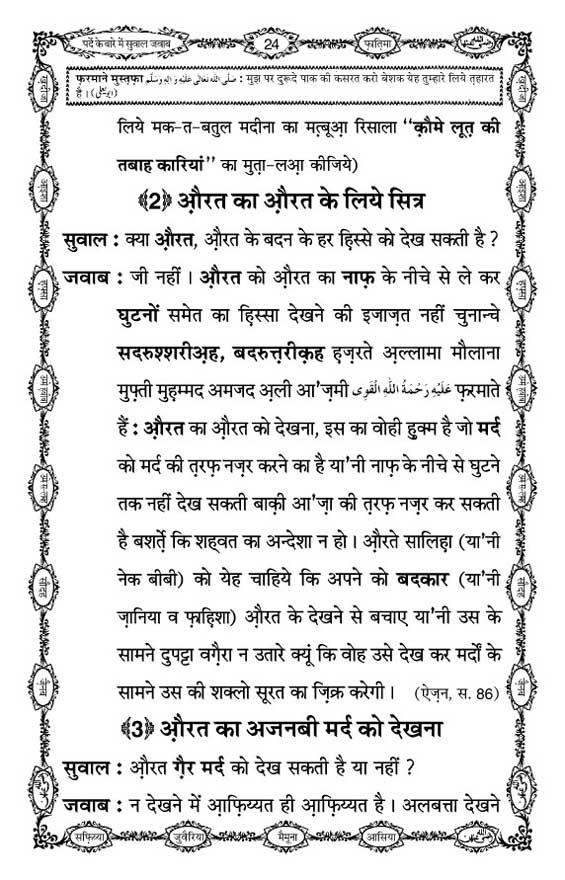 पर्दे के बारे में सुवाल जवाब
24
फ़ातिमा
फ़रमाने मुस्तफ़ा صَلَّى اللهُ تَعَالٰى عَلَيْهِ وَاٰلِهٖ وَسَلَّم : मुझ पर दुरूदे पाक की कसरत करो बेशक येह तुम्हारे लिये त़हारत
है । (ابو یعلیٰ)
लिये मक-त-बतुल मदीना का मत़्बूआ़ रिसाला ‘‘क़ौमे लूत़ की
तबाह कारियां’’ का मुत़ा-लआ़ कीजिये)
﴾2﴿ औ़रत का औ़रत के लिये सित्र
सुवाल : क्या औ़रत, औ़रत के बदन के हर हिस्से को देख सकती है ?
जवाब : जी नहीं । औ़रत को औ़रत का नाफ़ के नीचे से ले कर
घुटनों समेत का हिस्सा देखने की इजाज़त नहीं चुनान्चे
सदरुश्शरीअ़ह, बदरुत़्त़रीक़ह ह़ज़रते अ़ल्लामा मौलाना
मुफ़्ती मुह़म्मद अमजद अ़ली आ'ज़मी عَلَيْهِ رَحْمَةُ اللّٰهِ الْقَوِى फ़रमाते
हैं : औ़रत का औ़रत को देखना, इस का वोही हुक्म है जो मर्द
को मर्द की त़रफ़ नज़र करने का है या'नी नाफ़ के नीचे से घुटने
तक नहीं देख सकती बाक़ी आ'ज़ा की त़रफ़ नज़र कर सकती
है बशर्ते कि शह्वत का अन्देशा न हो । औ़रते सालिह़ा (या'नी
नेक बीबी) को येह चाहिये कि अपने को बदकार (या'नी
ज़ानिया व फ़ाह़िशा) औ़रत के देखने से बचाए या'नी उस के
सामने दुपट्टा वग़ैरा न उतारे क्यूं कि वोह उसे देख कर मर्दों के
सामने उस की शक्लो सूरत का ज़िक्र करेगी । (ऐज़न, स. 86)
﴾3﴿ औ़रत का अजनबी मर्द को देखना
सुवाल : औ़रत ग़ैर मर्द को देख सकती है या नहीं ?
जवाब : न देखने में आ़फ़िय्यत ही आ़फ़िय्यत है । अलबत्ता देखने
सफ़िय्या
जुवैरिया
मैमूना
आसिया